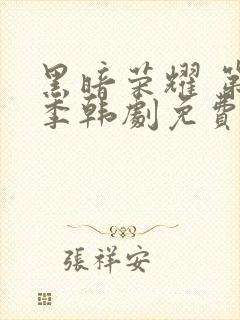 黑暗荣耀 第
季韩劇免費
張祥安